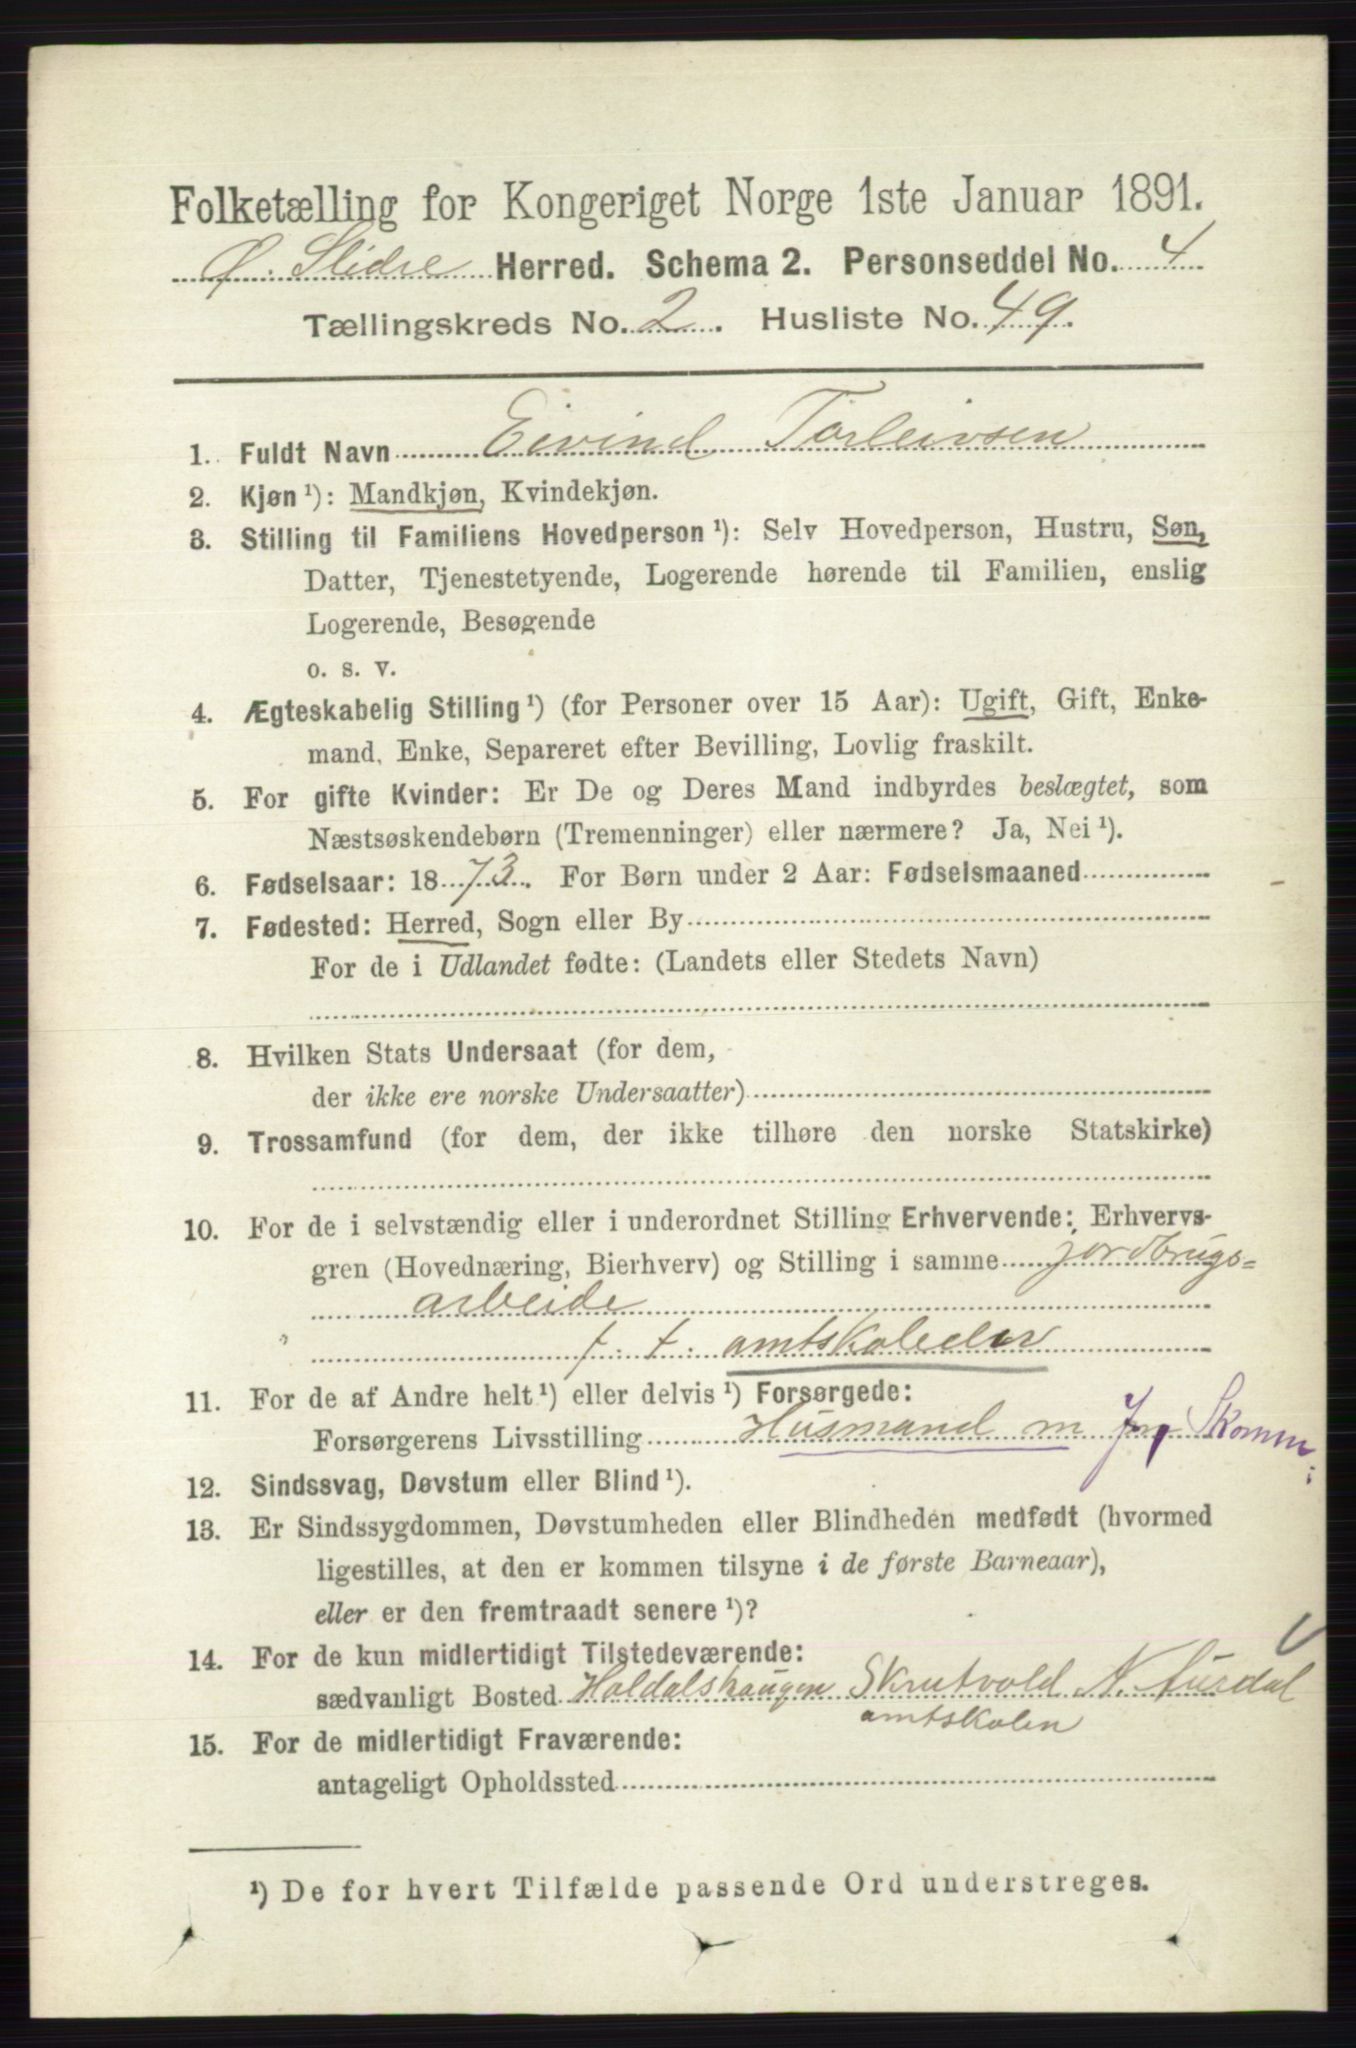 Folketælling for Kongeriget Norge 1ste Januar 1891.
Ø. Slidre Herred. Schema 2. Personseddel No. 4
Tællingskreds No. 2. Husliste No. 49.
1. Fuldt Navn Eivind Torleivsen
2. Kjøn ¹): Mandkjøn, Kvindekjøn.
3. Stilling til Familiens Hovedperson ¹): Selv Hovedperson, Hustru, Søn,
Datter, Tjenestetyende, Logerende hørende til Familien, enslig
Logerende, Besøgende
o. s. v.
4. Ægteskabelig Stilling ¹) (for Personer over 15 Aar): Ugift, Gift, Enke-
mand, Enke, Separeret efter Bevilling, Lovlig fraskilt.
5. For gifte Kvinder: Er De og Deres Mand indbyrdes beslægtet, som
Næstsøskendebørn (Tremenninger) eller nærmere? Ja, Nei ¹).
6. Fødselsaar: 1873. For Børn under 2 Aar: Fødselsmaaned
7. Fødested: Herred, Sogn eller By
For de i Udlandet fødte: (Landets eller Stedets Navn)
8. Hvilken Stats Undersaat (for dem,
der ikke ere norske Undersaatter)
9. Trossamfund (for dem, der ikke tilhøre den norske Statskirke)
10. For de i selvstændig eller i underordnet Stilling Erhvervende: Erhvervs-
gren (Hovednæring, Bierhverv) og Stilling i samme jordbrugs=
arbeide
f. t. amtskoleelev
11. For de af Andre helt ¹) eller delvis ¹) Forsørgede:
Forsørgerens Livsstilling Husmand m Jor Skomm
12. Sindssvag, Døvstum eller Blind ¹).
13. Er Sindssygdommen, Døvstumheden eller Blindheden medfødt (hvormed
ligestilles, at den er kommen tilsyne i de første Barneaar),
eller er den fremtraadt senere ¹)?
14. For de kun midlertidigt Tilstedeværende:
sædvanligt Bosted Haldalshaugen Skrutvold N. Aurdal
amtskolen
15. For de midlertidigt Fraværende:
antageligt Opholdssted
¹) De for hvert Tilfælde passende Ord understreges.